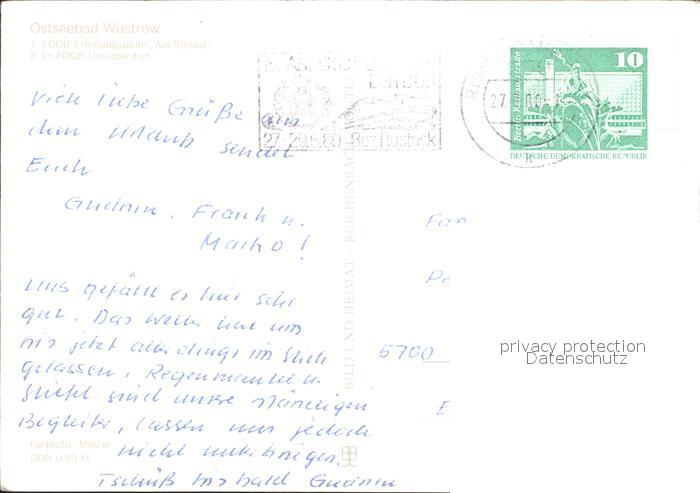 Ostseebad Wustrow
1. FDGB-Erholungsheim „Am Strand"
2. Im FDGB-Urlauberdorf
27.-29.6.80 Bez. Rostock
10
Berlin, Rathausstraße
DEUTSCHE DEMOKRATISCHE REPUBLIK
Viele liebe Grüße aus
dem Urlaub sendet
Euch
Frank u.
Marko!
Uns gefällt es hier sehr
gut. Das Wetter hat uns
bis jetzt allerdings im Stich
gelassen, Regenmantel u.
Stiefel sind unsre ständigen
Begleiter, lassen uns jedoch
nicht unterkriegen.
Tschüß bis bald
Fam
Pe
5700
E
BILD UND HEIMAT REICHENBACH
Farbfoto: Melzer
DDR 0,20 M
privacy protection
Datenschutz